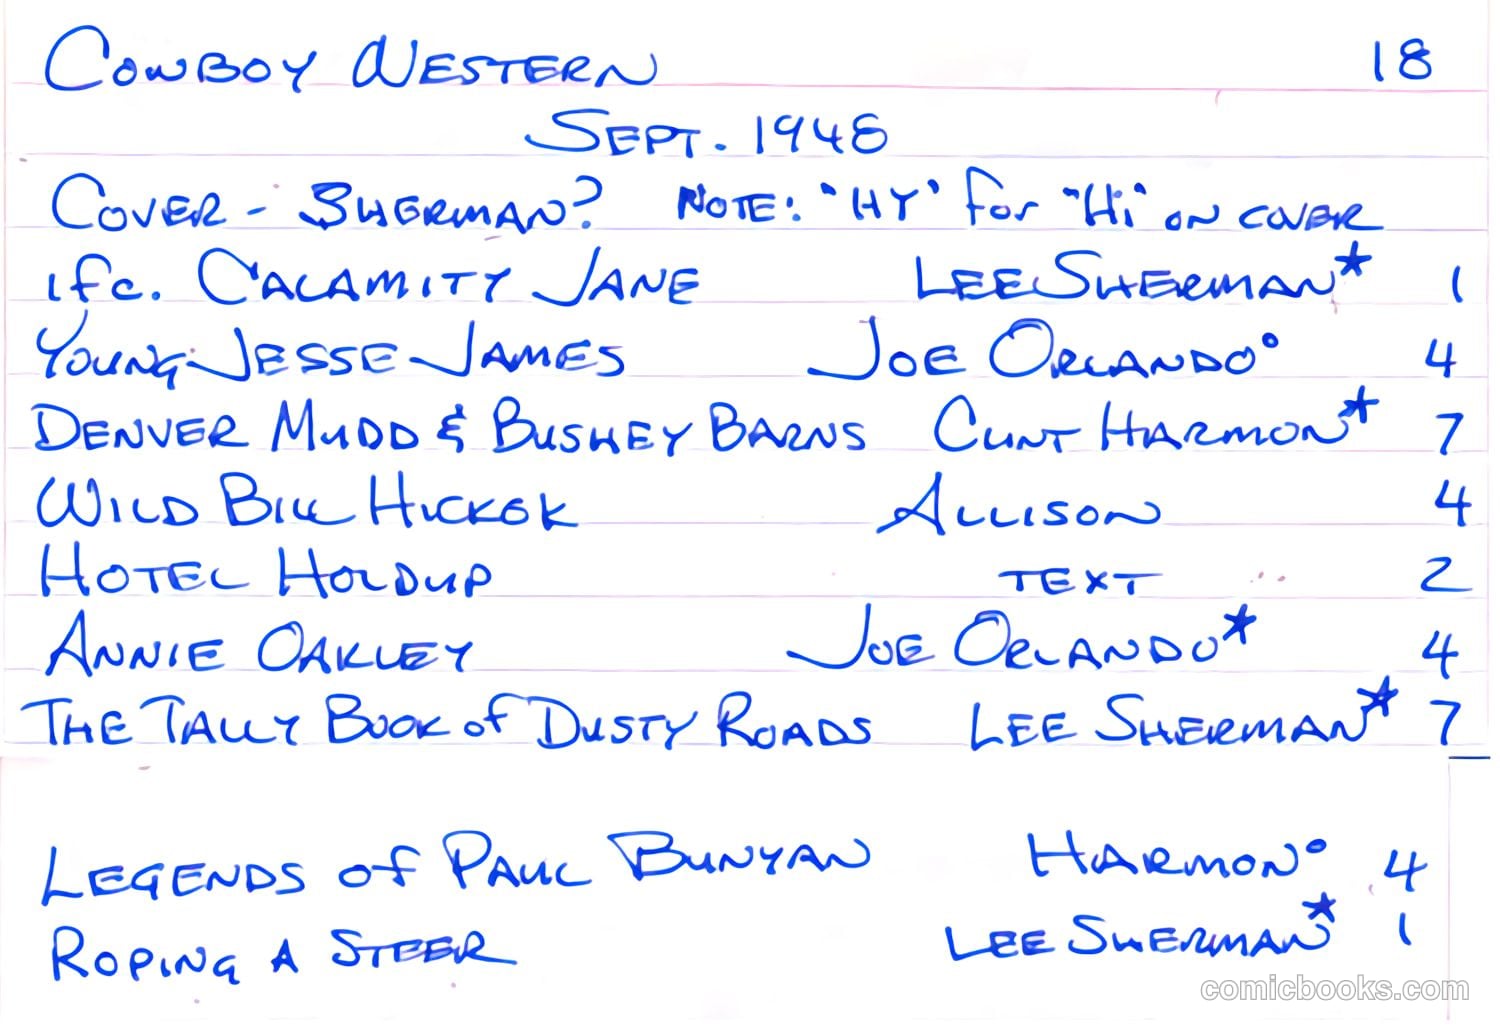 COWBOY WESTERN 18
SEPT. 1948
COVER - SHERMAN? NOTE: "HY" for "Hi" ON COVER
ifc. CALAMITY JANE LEE SHERMAN* 1
YOUNG JESSE JAMES JOE ORLANDO° 4
DENVER MUDD & BUSHEY BARNS CLINT HARMON* 7
WILD BILL HICKOK ALLISON 4
HOTEL HOLDUP TEXT 2
ANNIE OAKLEY JOE ORLANDO* 4
THE TALLY BOOK of DUSTY ROADS LEE SHERMAN* 7
LEGENDS of PAUL BUNYAN HARMON° 4
ROPING A STEER LEE SHERMAN* 1
comicbooks.com